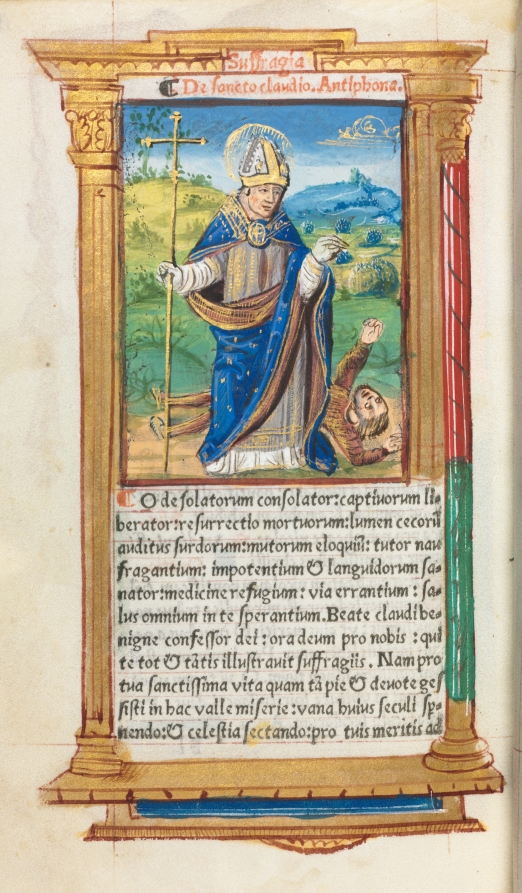 Suffragia
¶ De sancto claudio. Antiphona.
¶ O desolatorum consolator: captiuorum li-
berator: resurrectio mortuorum: lumen cecorū
auditus surdorum: mutorum eloquiū: tutor nau
fragantium: impotentium & languidorum sa-
nator: medicine refugium: via errantium: sa-
lus omnium in te sperantium. Beate claudi be-
nigne confessor dei: ora deum pro nobis: qui
te tot & tātis illustrauit suffragiis. Nam pro
tua sanctissima vita quam tā pie & deuote ges
sisti in hac valle miserie: vana huius seculi sp̄-
nendo: & celestia sectando: pro tuis meritis ad